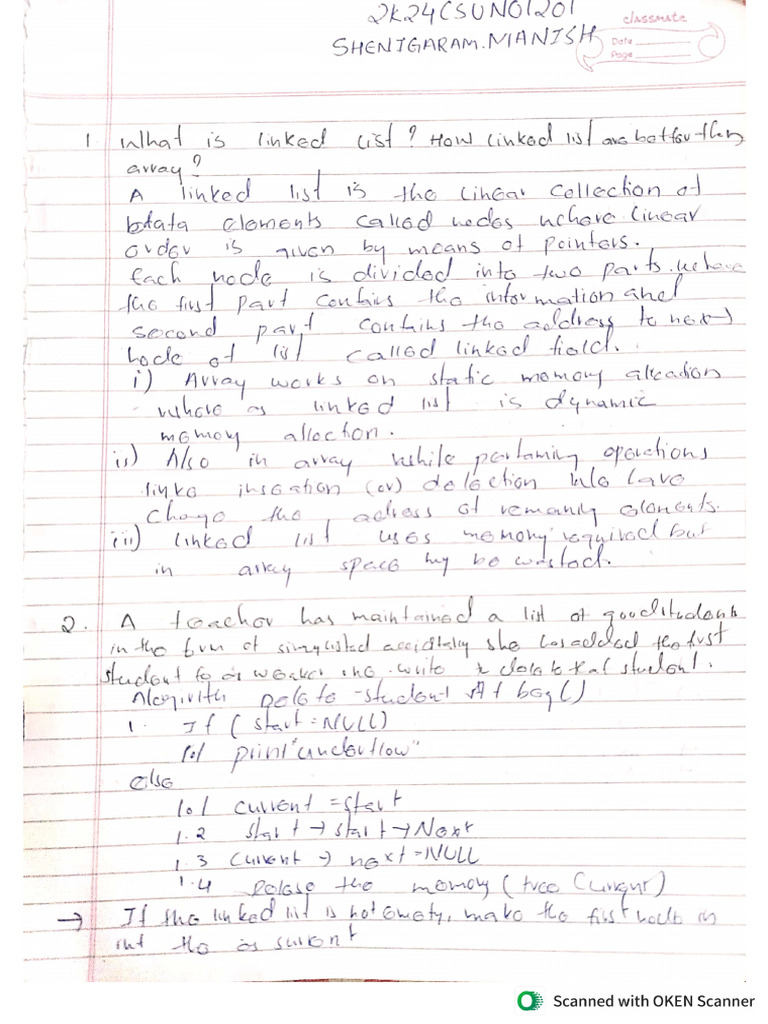 2K24CSUN01201
classmate
SHENIGARAM.MANISH
Date
Page
1 What is linked list? How linked list are better than
array?
A linked list is the linear collection of
data elements called nodes where linear
order is given by means of pointers.
Each node is divided into two parts. where
the first part contains the information and
second part contains the address to next
node of list called linked field.
i) Array works on static memory allcation
where as linked list is dynamic
memory alloction.
ii) Also in array while performing operations
linke inseation (or) deloction
change the adress of remaning elements.
iii) linked list uses memory required but
in array space may be wasted.
2. A teacher has maintained a list of good students
in the form of she has added the first
student write to delete that student.
Delete-student At beg()
1. If (start=NULL)
1.1 print "underflow"
else
1.1 current = start
1.2 start → start → Next
1.3 Current → next=NULL
1.4 Relase the memory (free Current)
→ If the linked list is not empty, make the first node
the as
Scanned with OKEN Scanner